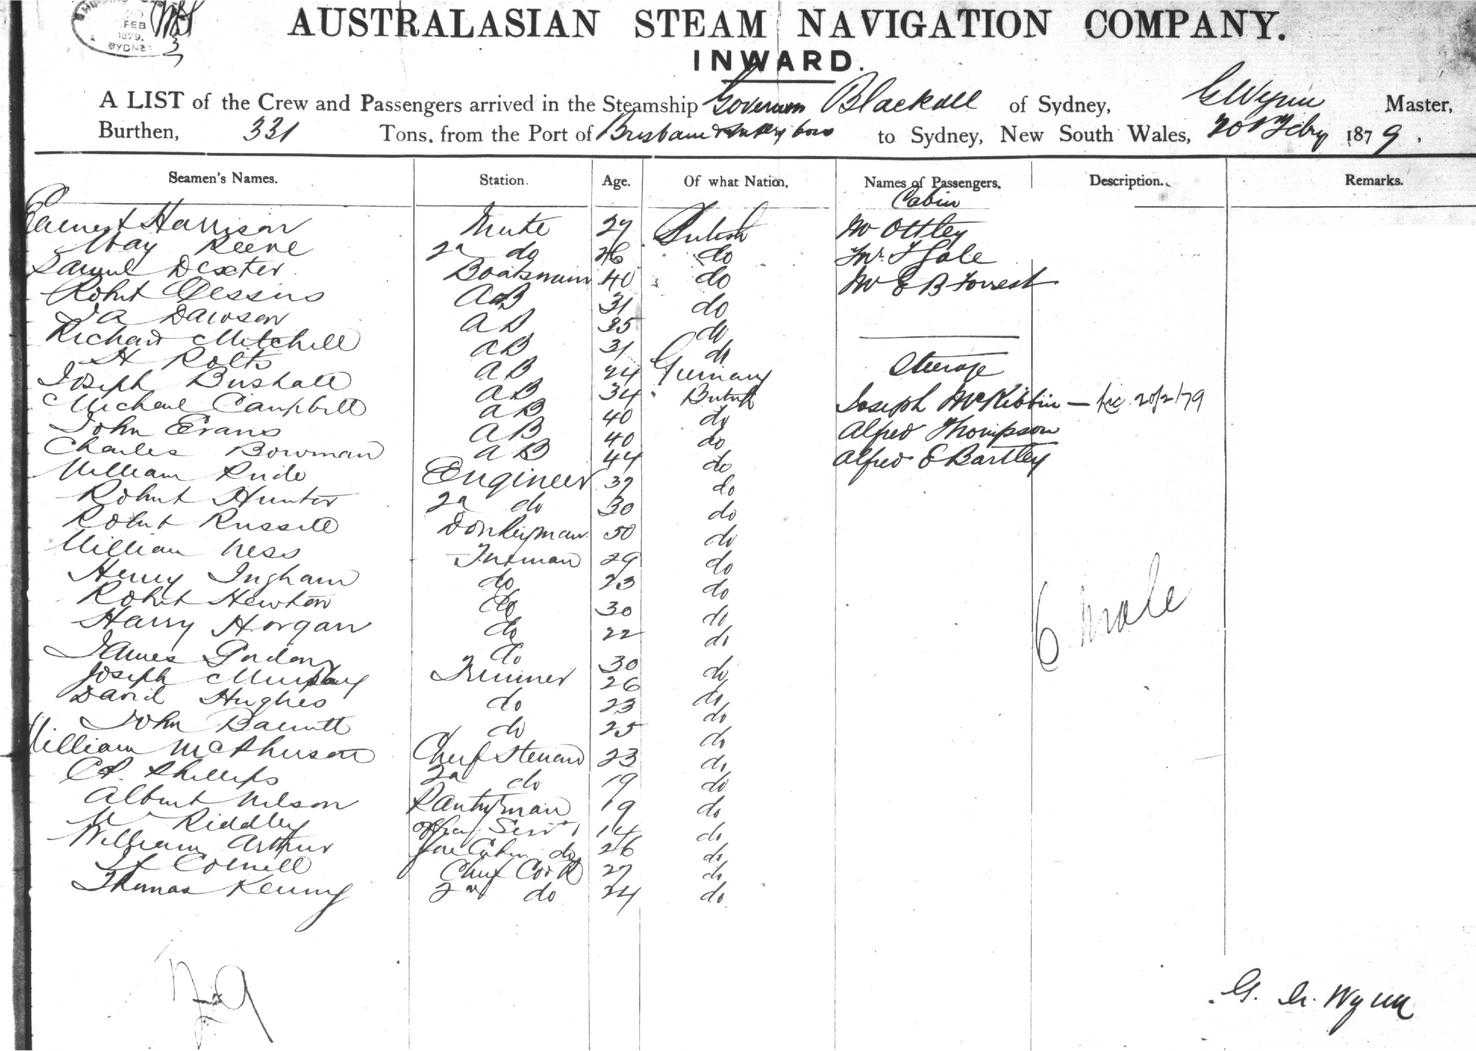 FEB
1879
SYDNEY
AUSTRALASIAN STEAM NAVIGATION COMPANY.
INWARD.
A LIST of the Crew and Passengers arrived in the Steamship Governor Blackall of Sydney, G Wynn Master,
Burthen, 331 Tons, from the Port of Brisbane to Sydney, New South Wales, 20 Feby 1879.
Seamen's Names. Station. Age. Of what Nation. Names of Passengers. Description. Remarks.
Cabin
Earnest Harrison Mate 27 British Mr Ottley
May Keene 2nd do 26 do Mr Gale
Samuel Dexter Boatswain 40 do Mr E B Forrest
Robert AB 31 do
J A Dawson AB 35 do
Richard Mitchell AB 31 do
H Rolts AB 24 Germany Steerage
Joseph Bushall AB 34 British
Michael Campbell AB 40 do Joseph McKibbin — 20/2/79
John Evans AB 40 do Alfred Thompson
Charles Bowman AB 44 do Alfred E Bartley
William Engineer 37 do
Robert Hunter 2nd do 30 do
Robert Russell Donkeyman 50 do
William Ness Fireman 29 do
Henry Ingham do 23 do
Robert Newton do 30 do
Harry Horgan do 22 do
6 male
James Gordon do 30 do
Joseph Murphy Trimmer 26 do
David Hughes do 23 do
John Barrett do 25 do
William McPherson Chief Steward 23 do
Phillips 2nd do 19 do
Albert Nelson Pantryman 19 do
Riddley 14 do
William Arthur Fore Cabin do 26 do
Cornell Chief Cook 27 do
Thomas Kenny 2nd do 24 do
G. Wynn